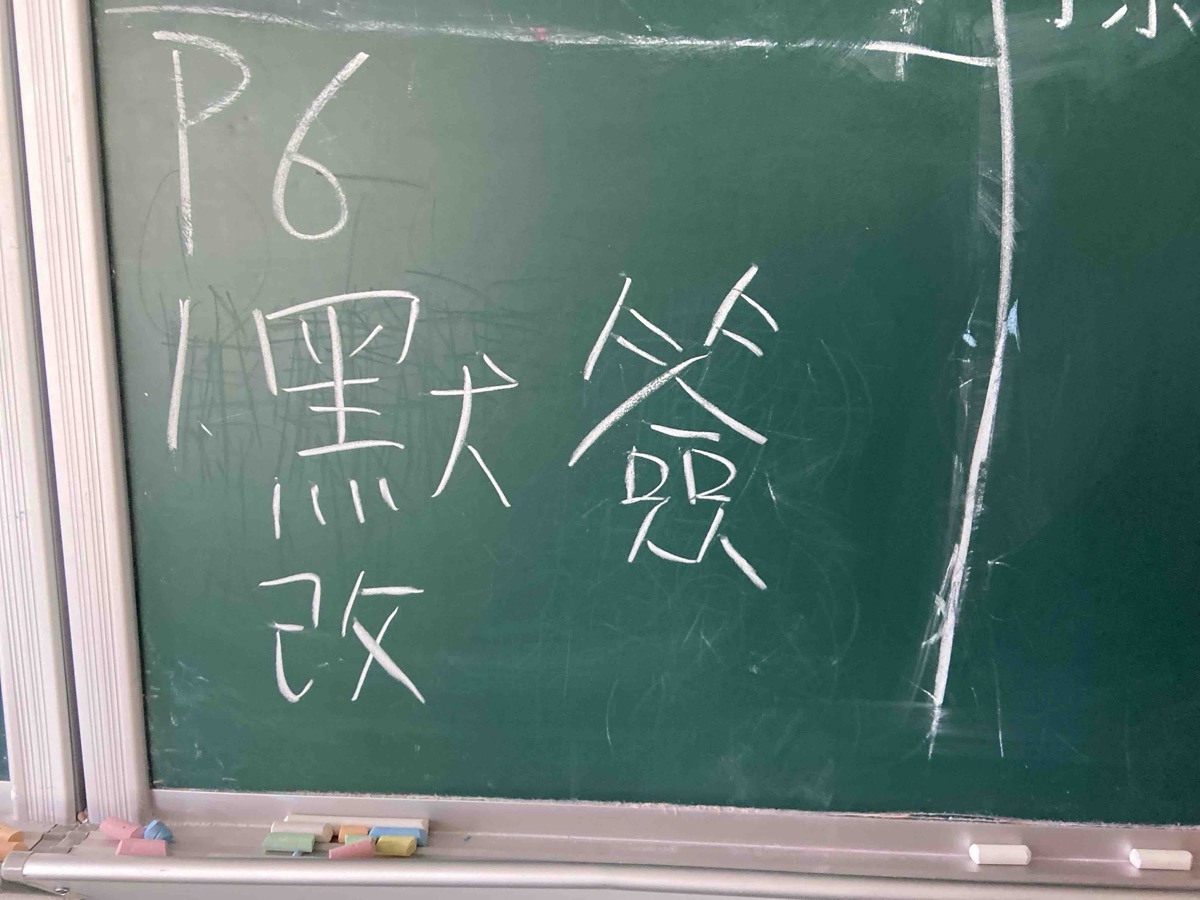 P6
1. 默簽
改